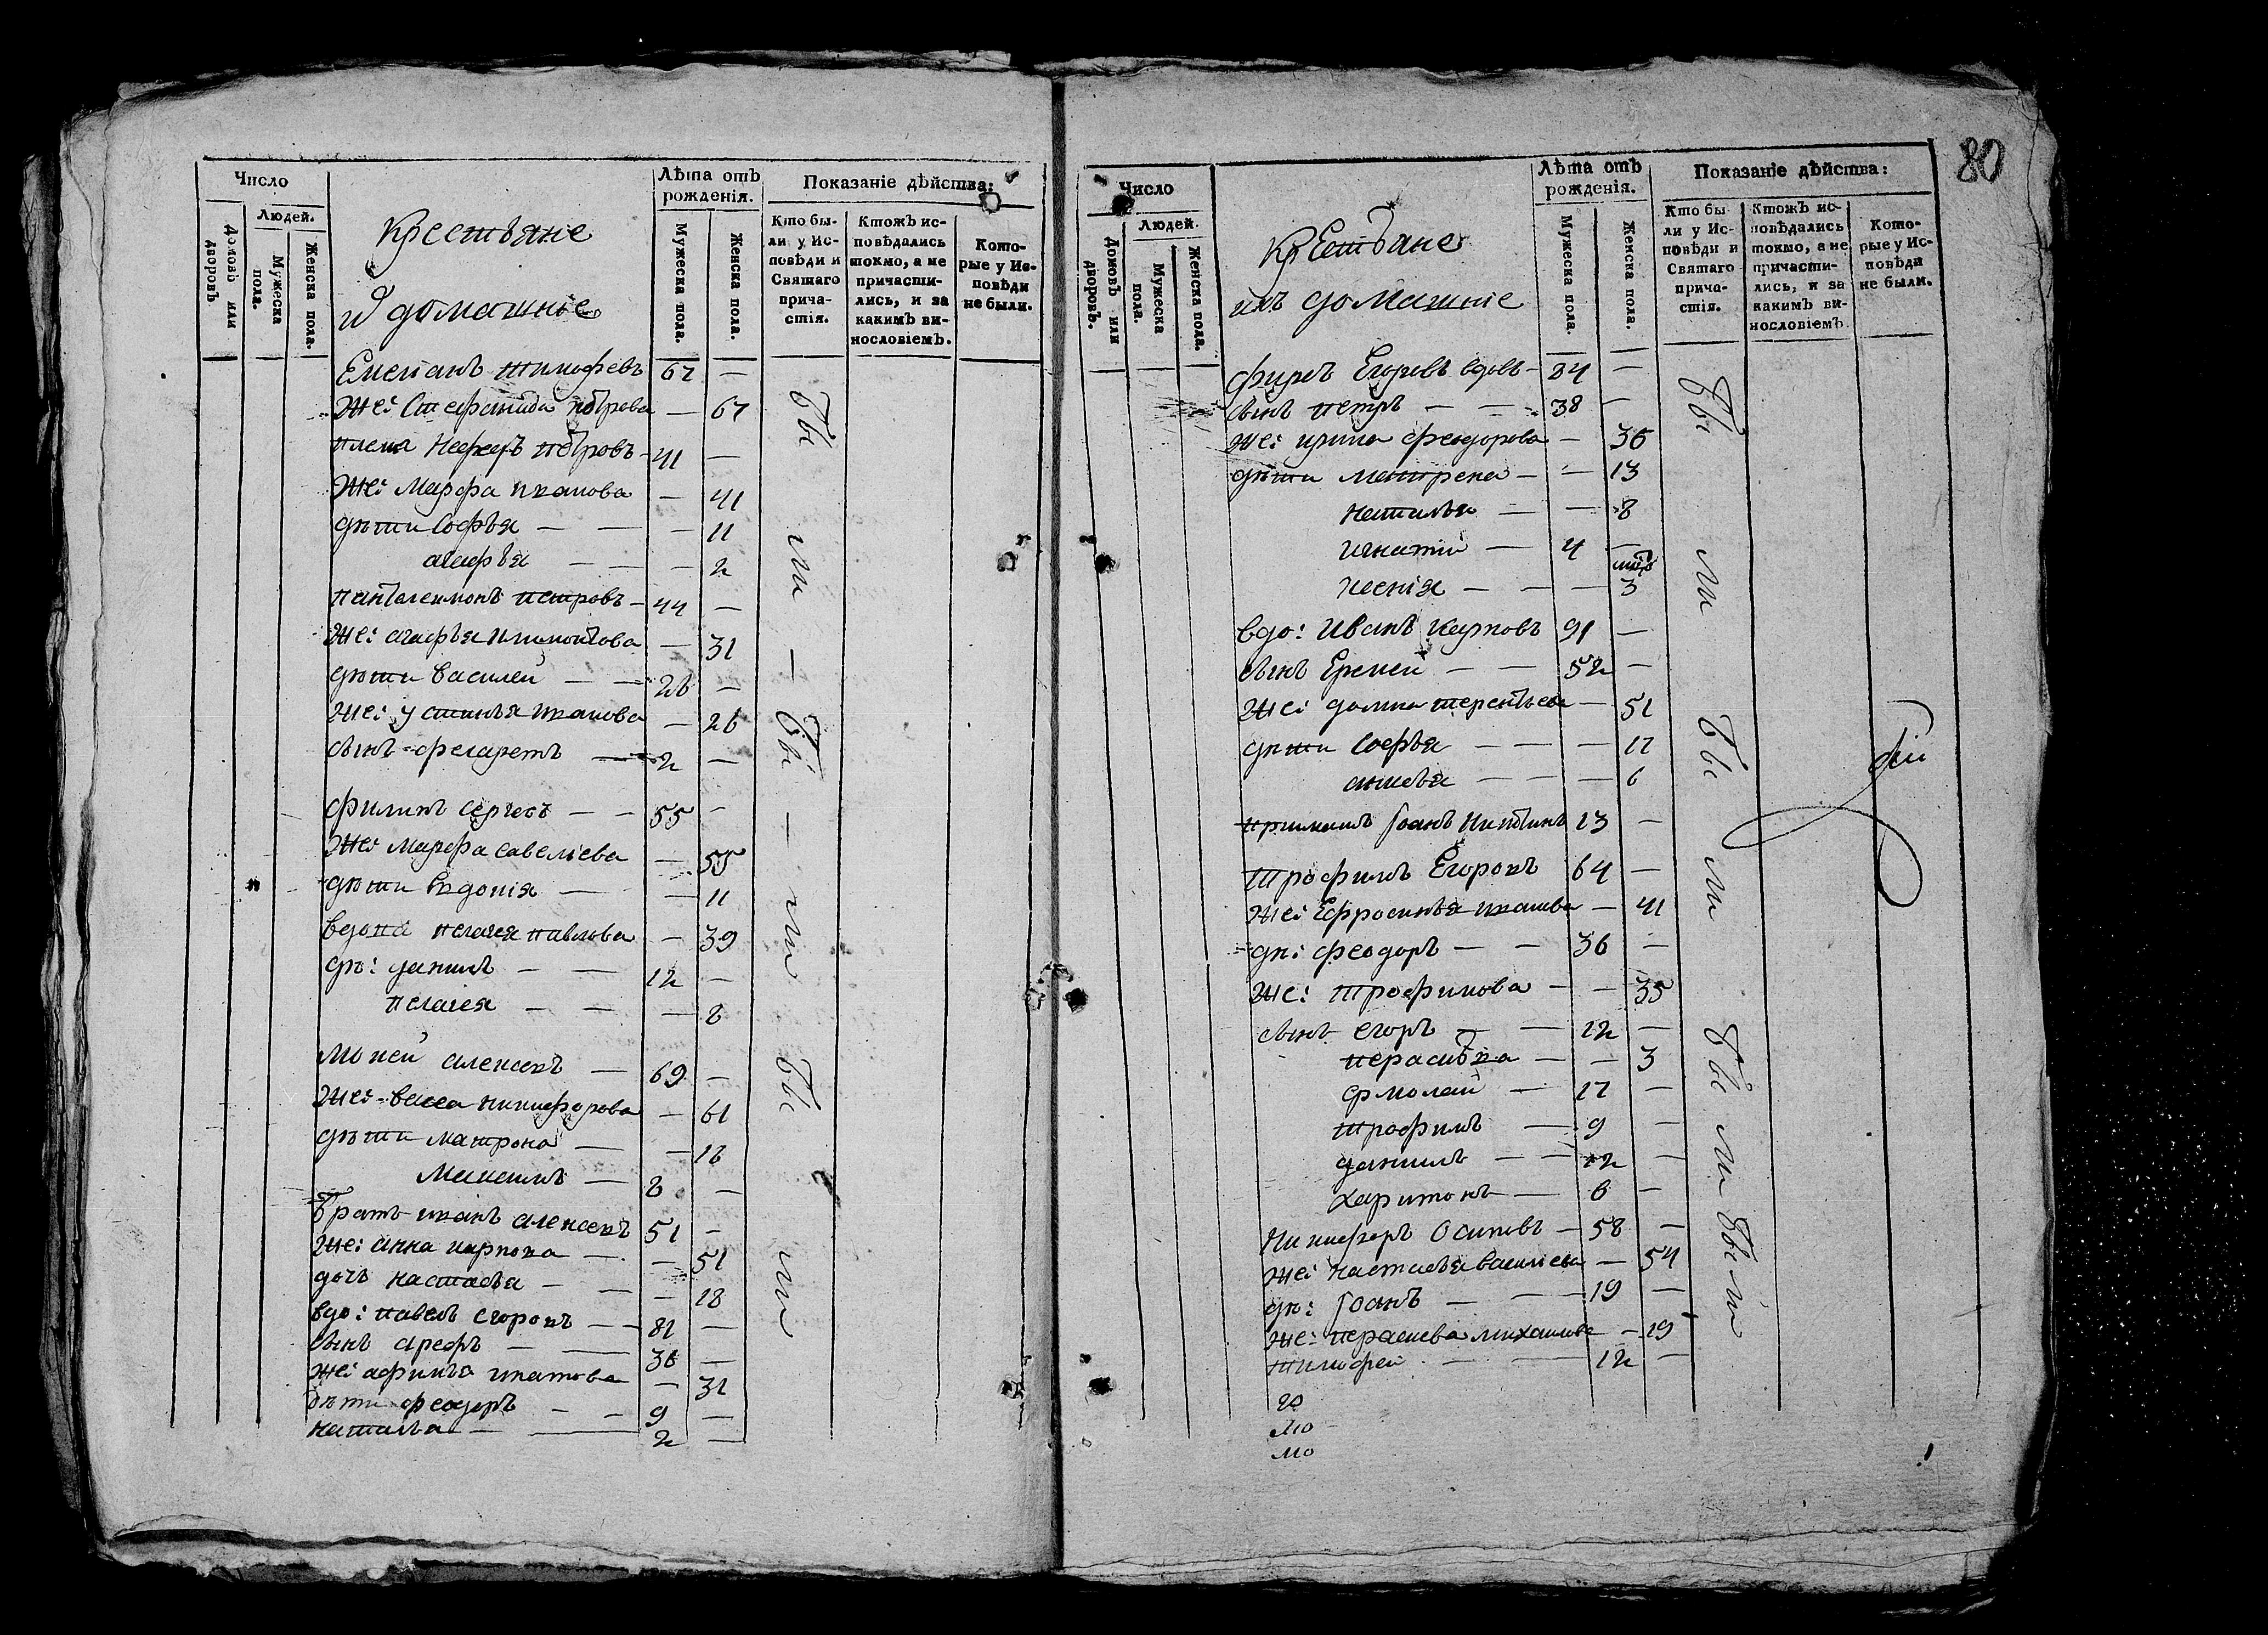 Число
Людей.
Домовъ или дворовъ.
Мужеска пола.
Женска пола.
Крестьяне
и домашніе
Лѣта отъ рожденія.
Мужеска пола.
Женска пола.
Показаніе дѣйства:
Кто бы-
ли у Ис-
повѣди и
Святаго
прича-
стія.
Ктожъ ис-
повѣдались
токмо, а не
причасти-
лись, и за
какимъ ви-
нословіемъ.
Кото-
рые у Ис-
повѣди
не были.
Емелианъ тимофевъ 67 —
же: Стефанида петрова — 67
племя петровъ — 41 —
Же: Марфа иванова — 41
дѣти Софья — — — 11
агафья — — — 2
пантелеимонъ петровъ — 44 —
Же: агафья — 31
дѣти Василей — — 26 —
Же: устинья иванова — 26
сынъ филаретъ — 2 —
филипъ сергевъ — — 55 —
Же: марфа савелиева — 55
дѣти Евдокія — — 11
вдова пелагея павлова — 39
дѣ: данилъ — — 12 —
пелагея — — — 8
Мокей алексевъ — 69 —
Же: васса никифорова — 61
дѣти матрона — — 18
Максимъ — 8 —
Братъ иванъ алексевъ 51 —
Же: анна карпова — — 51
дочь настасья — — — 18
вдо: павелъ егоровъ — — 81 —
сынъ арефъ — — 36 —
же: афимья игнатова — 31
дѣти феодоръ — — 9 —
наталья — — 2 —
бы ли — бы — ли бы ли
80
Число
Людей.
Домовъ или дворовъ.
Мужеска пола.
Женска пола.
Крестьяне
ихъ домашніе
Лѣта отъ рожденія.
Мужеска пола.
Женска пола.
Показаніе дѣйства:
Кто бы
ли у Ис-
повѣди и
Святаго
прича-
стія.
Ктожъ ис-
повѣдались
токмо, а не
причасти-
лись, и за
какимъ ви-
нословіемъ.
Кото-
рые у Ис-
повѣди
не были.
фирсъ Егоровъ вдовъ — 84 —
сынъ петръ — — 38 —
Же: ирина феодорова — 36
дѣти матрена — — 13
наталья — — 8
игнатій — 4 —
ксенія — — — 3
вдо: иванъ карповъ 91 —
сынъ Еремей — — 52 —
Же: домна терентьева — 51
дѣти софья — — — 17
анисья — — — 6
приимышъ Іоанъ никитинъ 13 —
трофимъ Егоровъ 64 —
Же: Ефросинья иванова — 41
дѣ: феодоръ — — 36 —
Же: трофимова — — 35
сынъ егоръ — — 12 —
— — 3
ермолай — 17 —
трофимъ — 9 —
данилъ — — 12 —
харитонъ — 6 —
никифоръ Осиповъ — 58 —
Же: настасья василиева — 54
дѣ: Іоанъ — — — 19 —
Же: парасиева михаилова — 19
тимофей — — 12 —
бы ли бы ли бы ли были